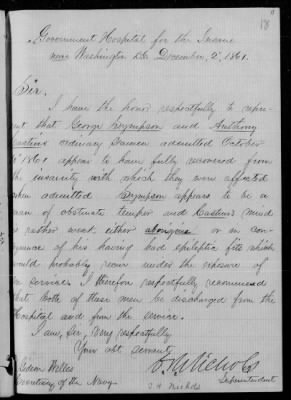 18
Government Hospital for the Insane
near Washington D.C. December, 2d 1861.
Sir.
I have the honor respectfully to repre-
ent that George Sympson and Anthony
ordinary Seamen admitted October
1861 appear to have fully recovered from
the insanity with which they were affected
when admitted. Sympson appears to be a
man of obstinate temper and mind
is rather weak either or in con-
quence of his having had epileptic fits which
would probably recur under the exposure of
service. I therefore respectfully recommend
that both of these men be discharged from the
Hospital and from the service.
I am, Sir, very respectfully
Your obt. servant,
Gideon Welles C. H. Nichols
Secretary of the Navy. Superintendent
C. H. Nichols